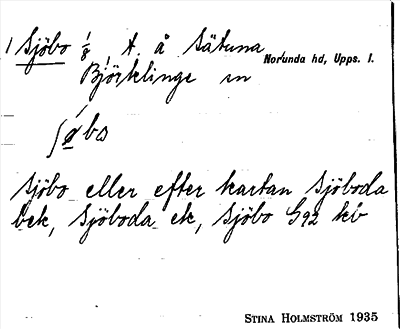 1 Sjöbo 1/8, t. å Sätuna
Norunda hd, Upps. l.
Björklinge sn
Sjöbo eller efter kartan Sjöboda
bek, Sjöboda ek, Sjöbo G92 kb
STINA HOLMSTRÖM 1935